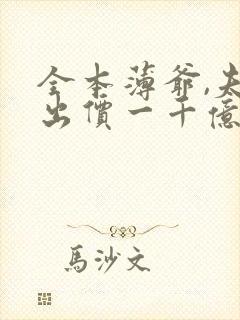 全本薄爺,夫
出價一千億
馬沙文